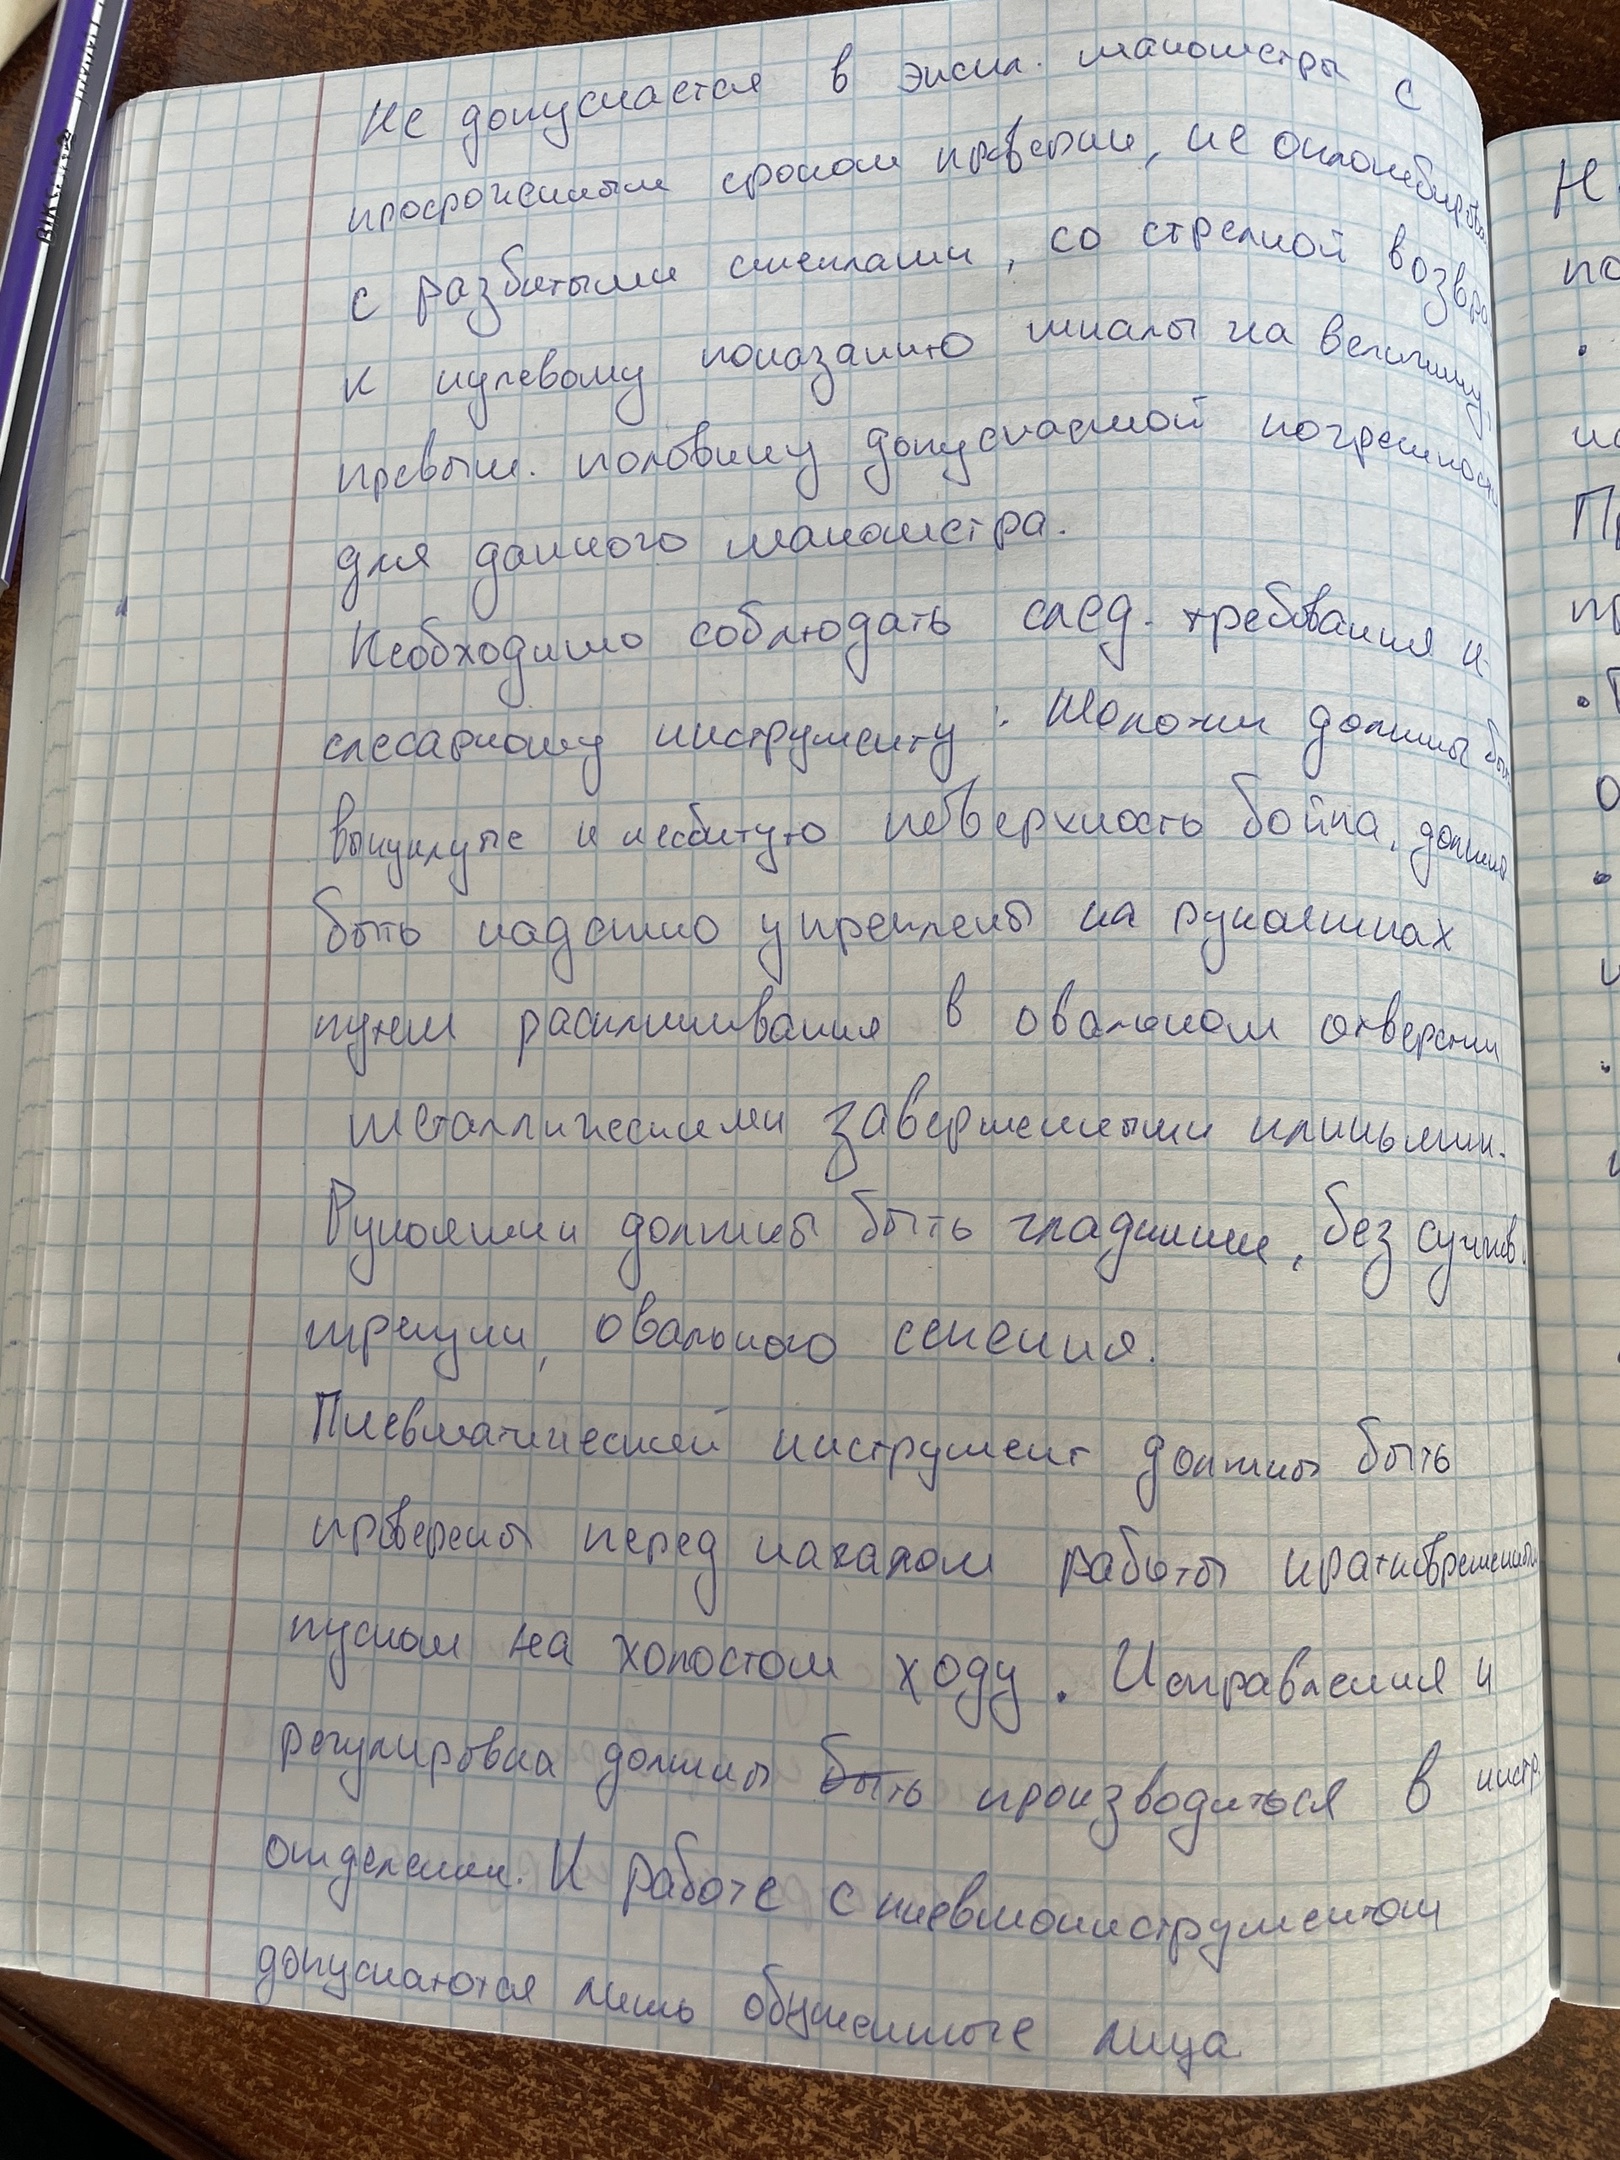 Не допускается в экспл. манометры с
просроченным сроком проверки, не опломбиров
с разбитыми стеклами, со стрелкой возвра
к нулевому показанию шкалы на величину,
превыш. половину допускаемой погрешности
для данного манометра.
Необходимо соблюдать след. требования к
слесарному инструменту: Молотки должны быть
выпуклые и несбитую поверхность бойка, должны
быть надежно укреплены на рукоятках
путем расклинивания в овальном отверстии
металлическими завершенными клиньями.
Рукоятки должны быть гладкими, без сучков и
трещин, овального сечения.
Пневматический инструмент должны быть
проверены перед началом работы кратковременным
пуском на холостом ходу. Исправления и
регулировка должны быть производиться в инстр.
отделении. К работе с пневмоинструментом
допускаются лишь обученные лица
Н
по
П
пр
о
и